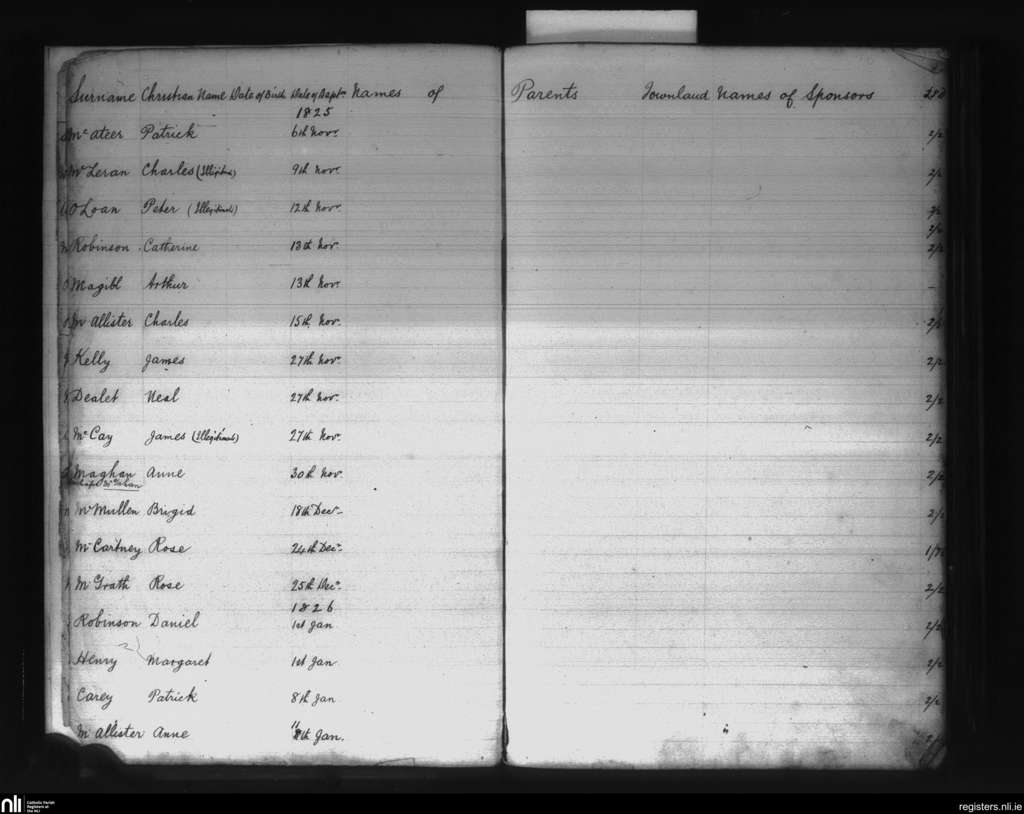 Surname Christian Name Date of Birth Date of Bapt. Names of Parents Townland Names of Sponsors
1825
Mc ateer Patrick 6th Novr. 2/2
Mc Leran Charles 9th Novr. 2/2
O'Loan Peter 12th Novr.
Robinson Catherine 13th Nov. 2/2
Magill Arthur 13th Novr.
Mc Allister Charles 15th Nov. 2/6
Kelly James 27th Novr. 2/2
Dealet Neal 27th Nov. 2/2
Mc Cay James 27th Nov. 2/2
Maghan Anne 30th Nov. 2/2
Mc Mullen Brigid 18th Decr 2/2
Mc Cartney Rose 24th Decr.
Mc Grath Rose 25th Decr. 2/2
1826
Robinson Daniel 1st Jan 2/2
Henry Margaret 1st Jan 2/2
Carey Patrick 8th Jan 2/2
Mc Allister Anne 8th Jan.
nli
Catholic Parish
Registers at
the NLI
registers.nli.ie